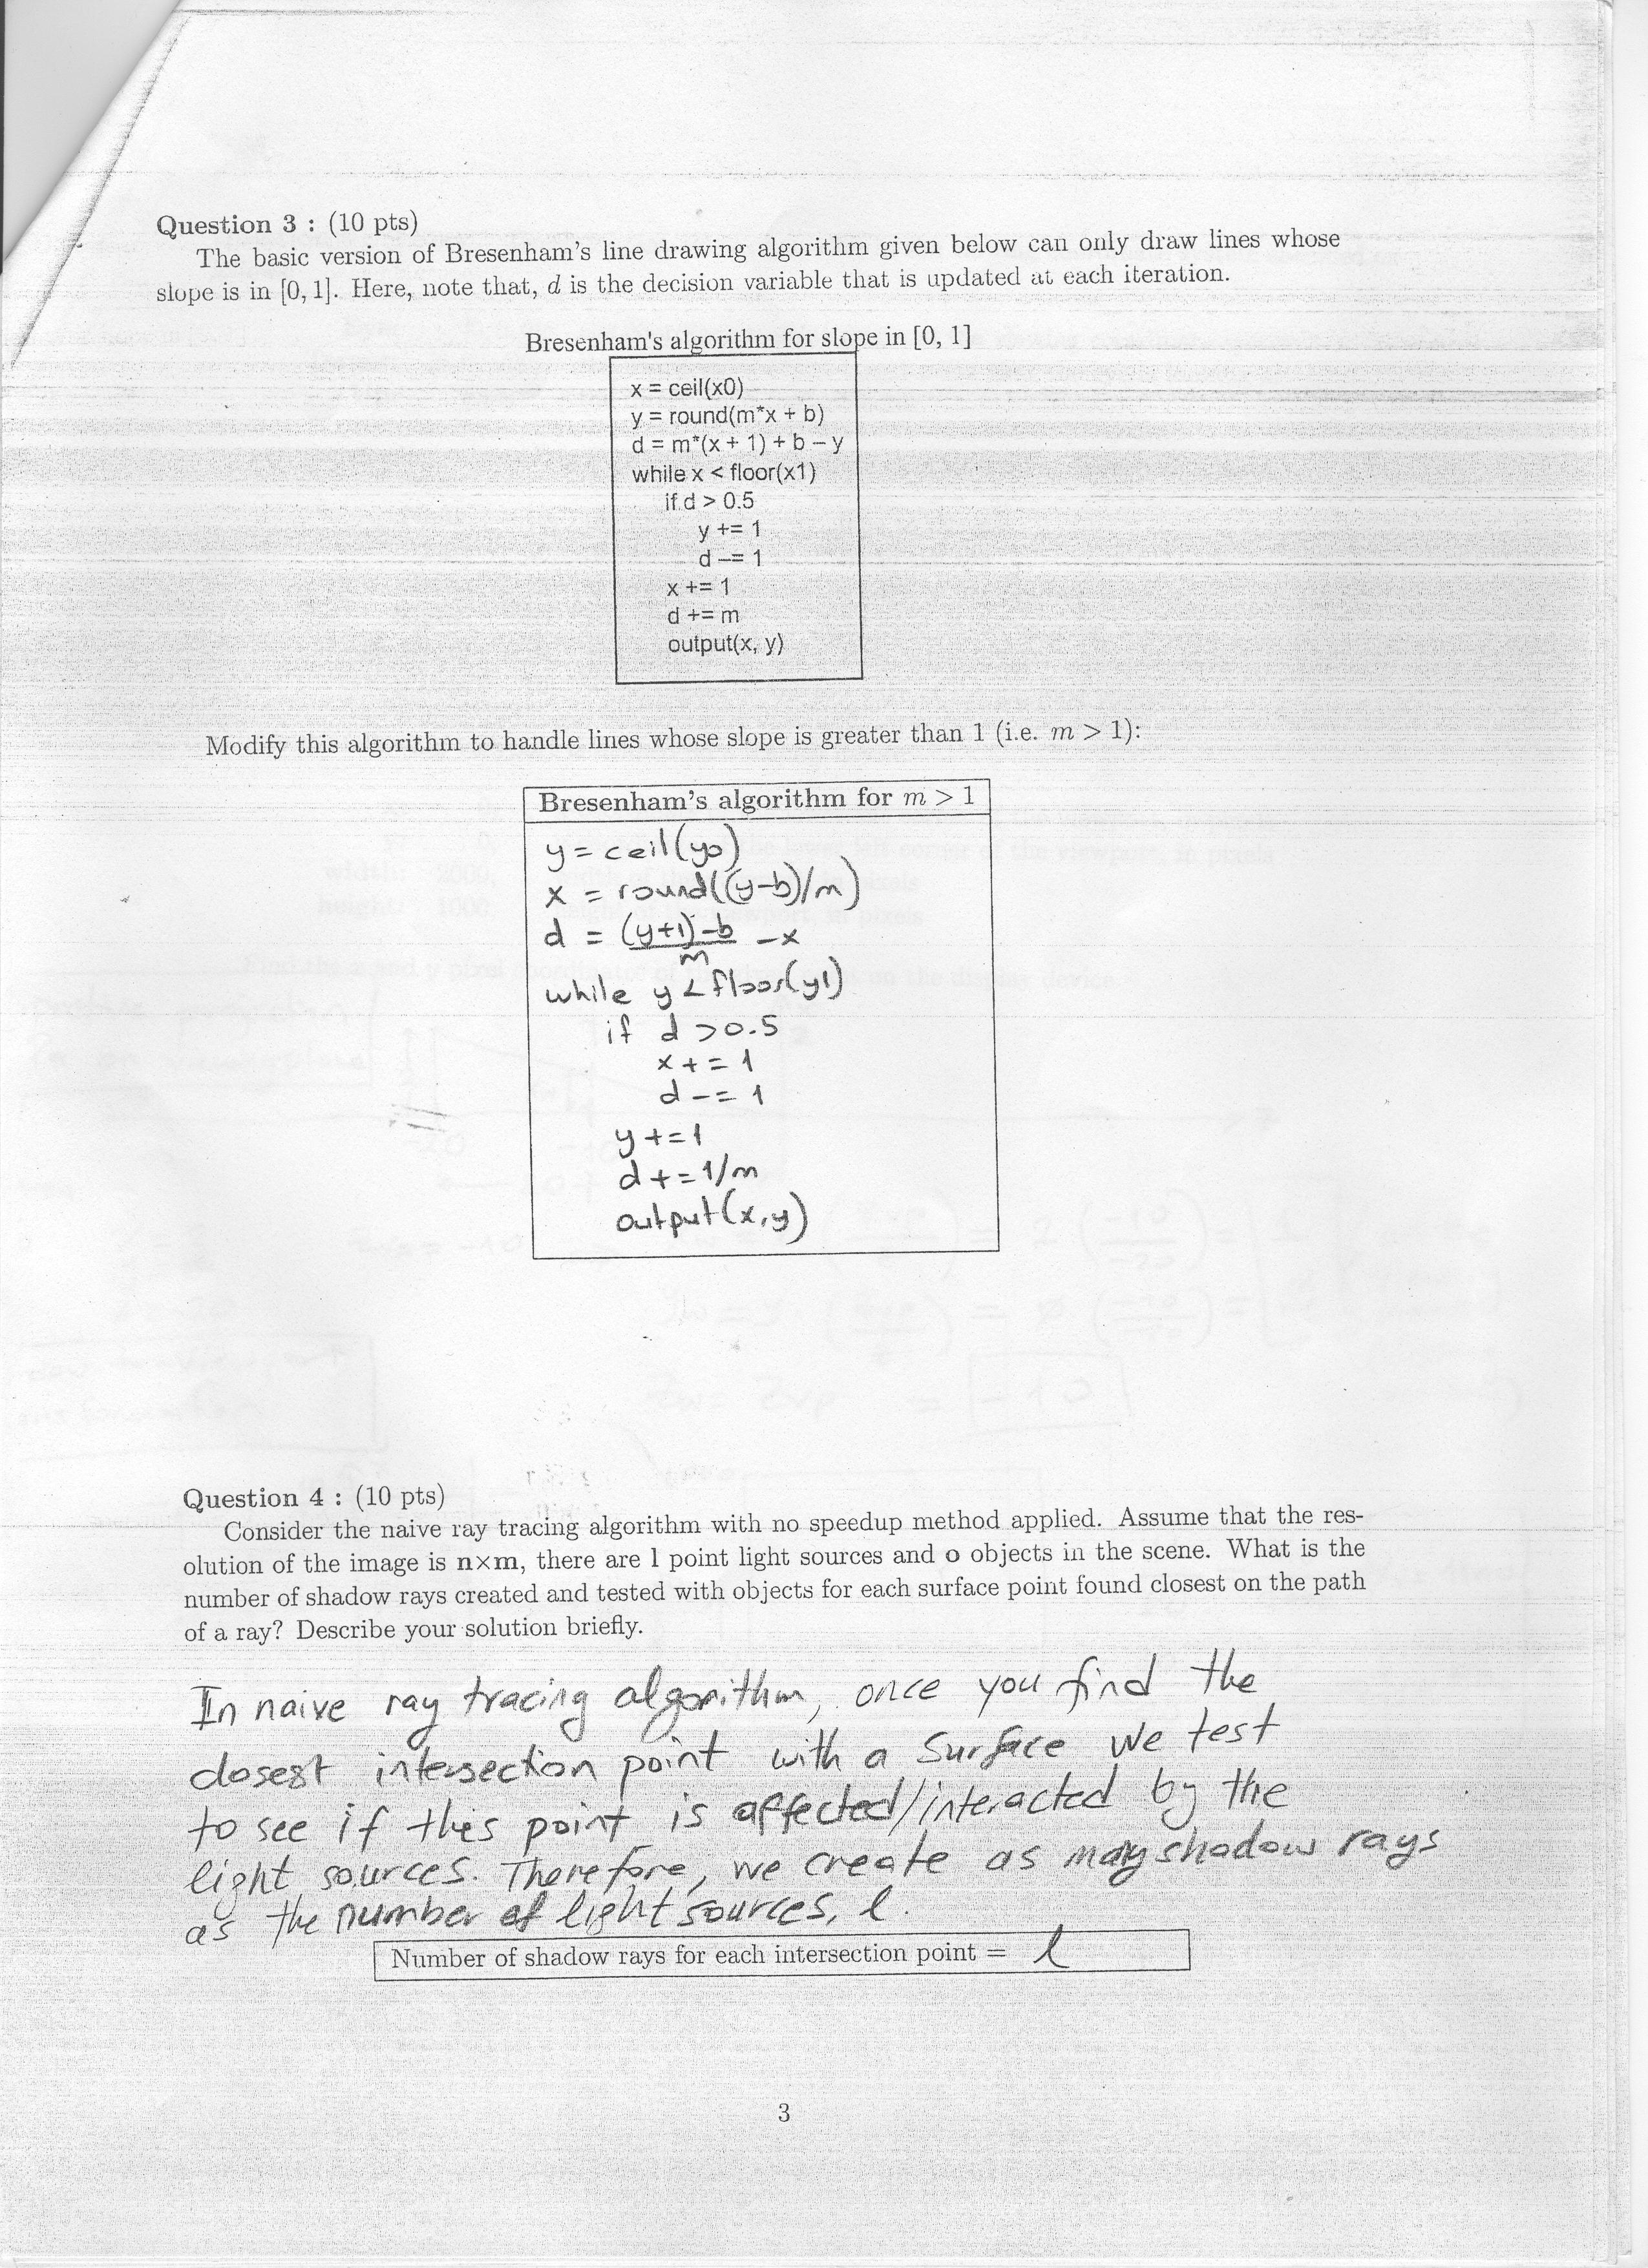 Question 3 : (10 pts)
The basic version of Bresenham's line drawing algorithm given below can only draw lines whose
slope is in [0, 1]. Here, note that, d is the decision variable that is updated at each iteration.
Bresenham's algorithm for slope in [0, 1]
x = ceil(x0)
y = round(m*x + b)
d = m*(x + 1) + b – y
while x < floor(x1)
if d > 0.5
y += 1
d –= 1
x += 1
d += m
output(x, y)
Modify this algorithm to handle lines whose slope is greater than 1 (i.e. m > 1):
Bresenham's algorithm for m > 1
y = ceil(y0)
x = round((y-b)/m)
d = (y+1)-b -x
m
while y < floor(y1)
if d > 0.5
x += 1
d -= 1
y += 1
d += 1/m
output(x,y)
Question 4 : (10 pts)
Consider the naive ray tracing algorithm with no speedup method applied. Assume that the res-
olution of the image is n×m, there are l point light sources and o objects in the scene. What is the
number of shadow rays created and tested with objects for each surface point found closest on the path
of a ray? Describe your solution briefly.
In naive ray tracing algorithm, once you find the
closest intersection point with a surface we test
to see if this point is affected/interacted by the
light sources. Therefore, we create as many shadow rays
as the number of light sources, l.
Number of shadow rays for each intersection point = l
3